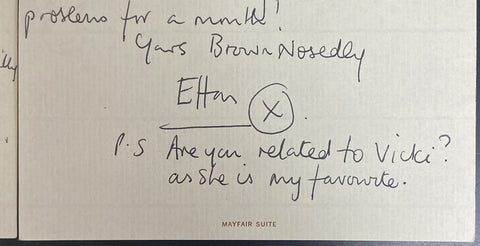 problems for a month!
Yours Brown Nosedly
Elton
X
P.S Are you related to Vicki?
as she is my favourite.
MAYFAIR SUITE